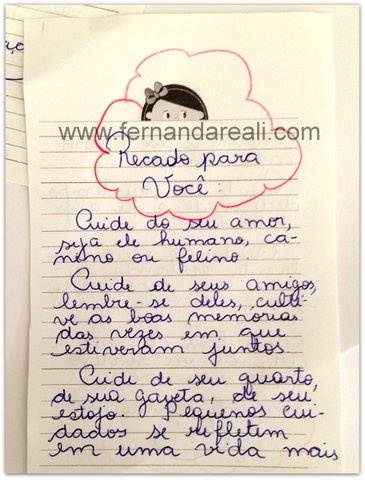 www.fernandareali.com
Recado para
Você:
Cuide do seu amor,
seja ele humano, ca-
nino ou felino.
Cuide de seus amigos,
lembre-se deles, culti-
ve as boas memorias
das vezes em que
estiveram juntos
Cuide de seu quarto,
de sua gaveta, de seu
estojo. Pequenos cui-
dados se refletem
em uma vida mais